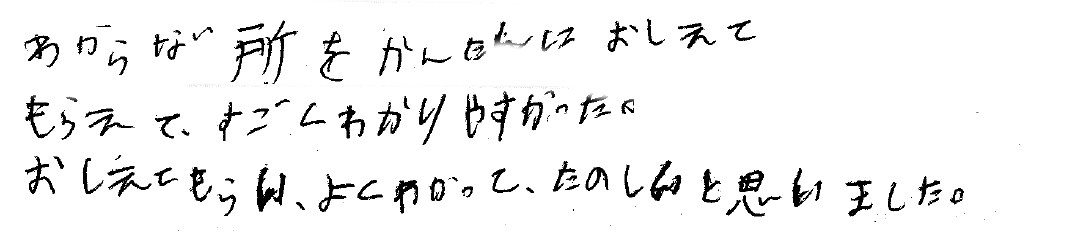 わからない所をかんたんにおしえて
もらえて、すごくわかりやすかった。
おしえてもらい、よくわかって、たのしいと思いました。